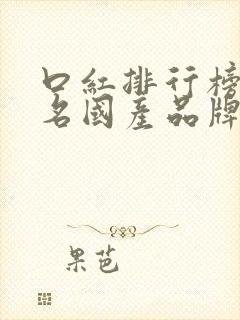 口紅排行榜
名國産品牌
果芭